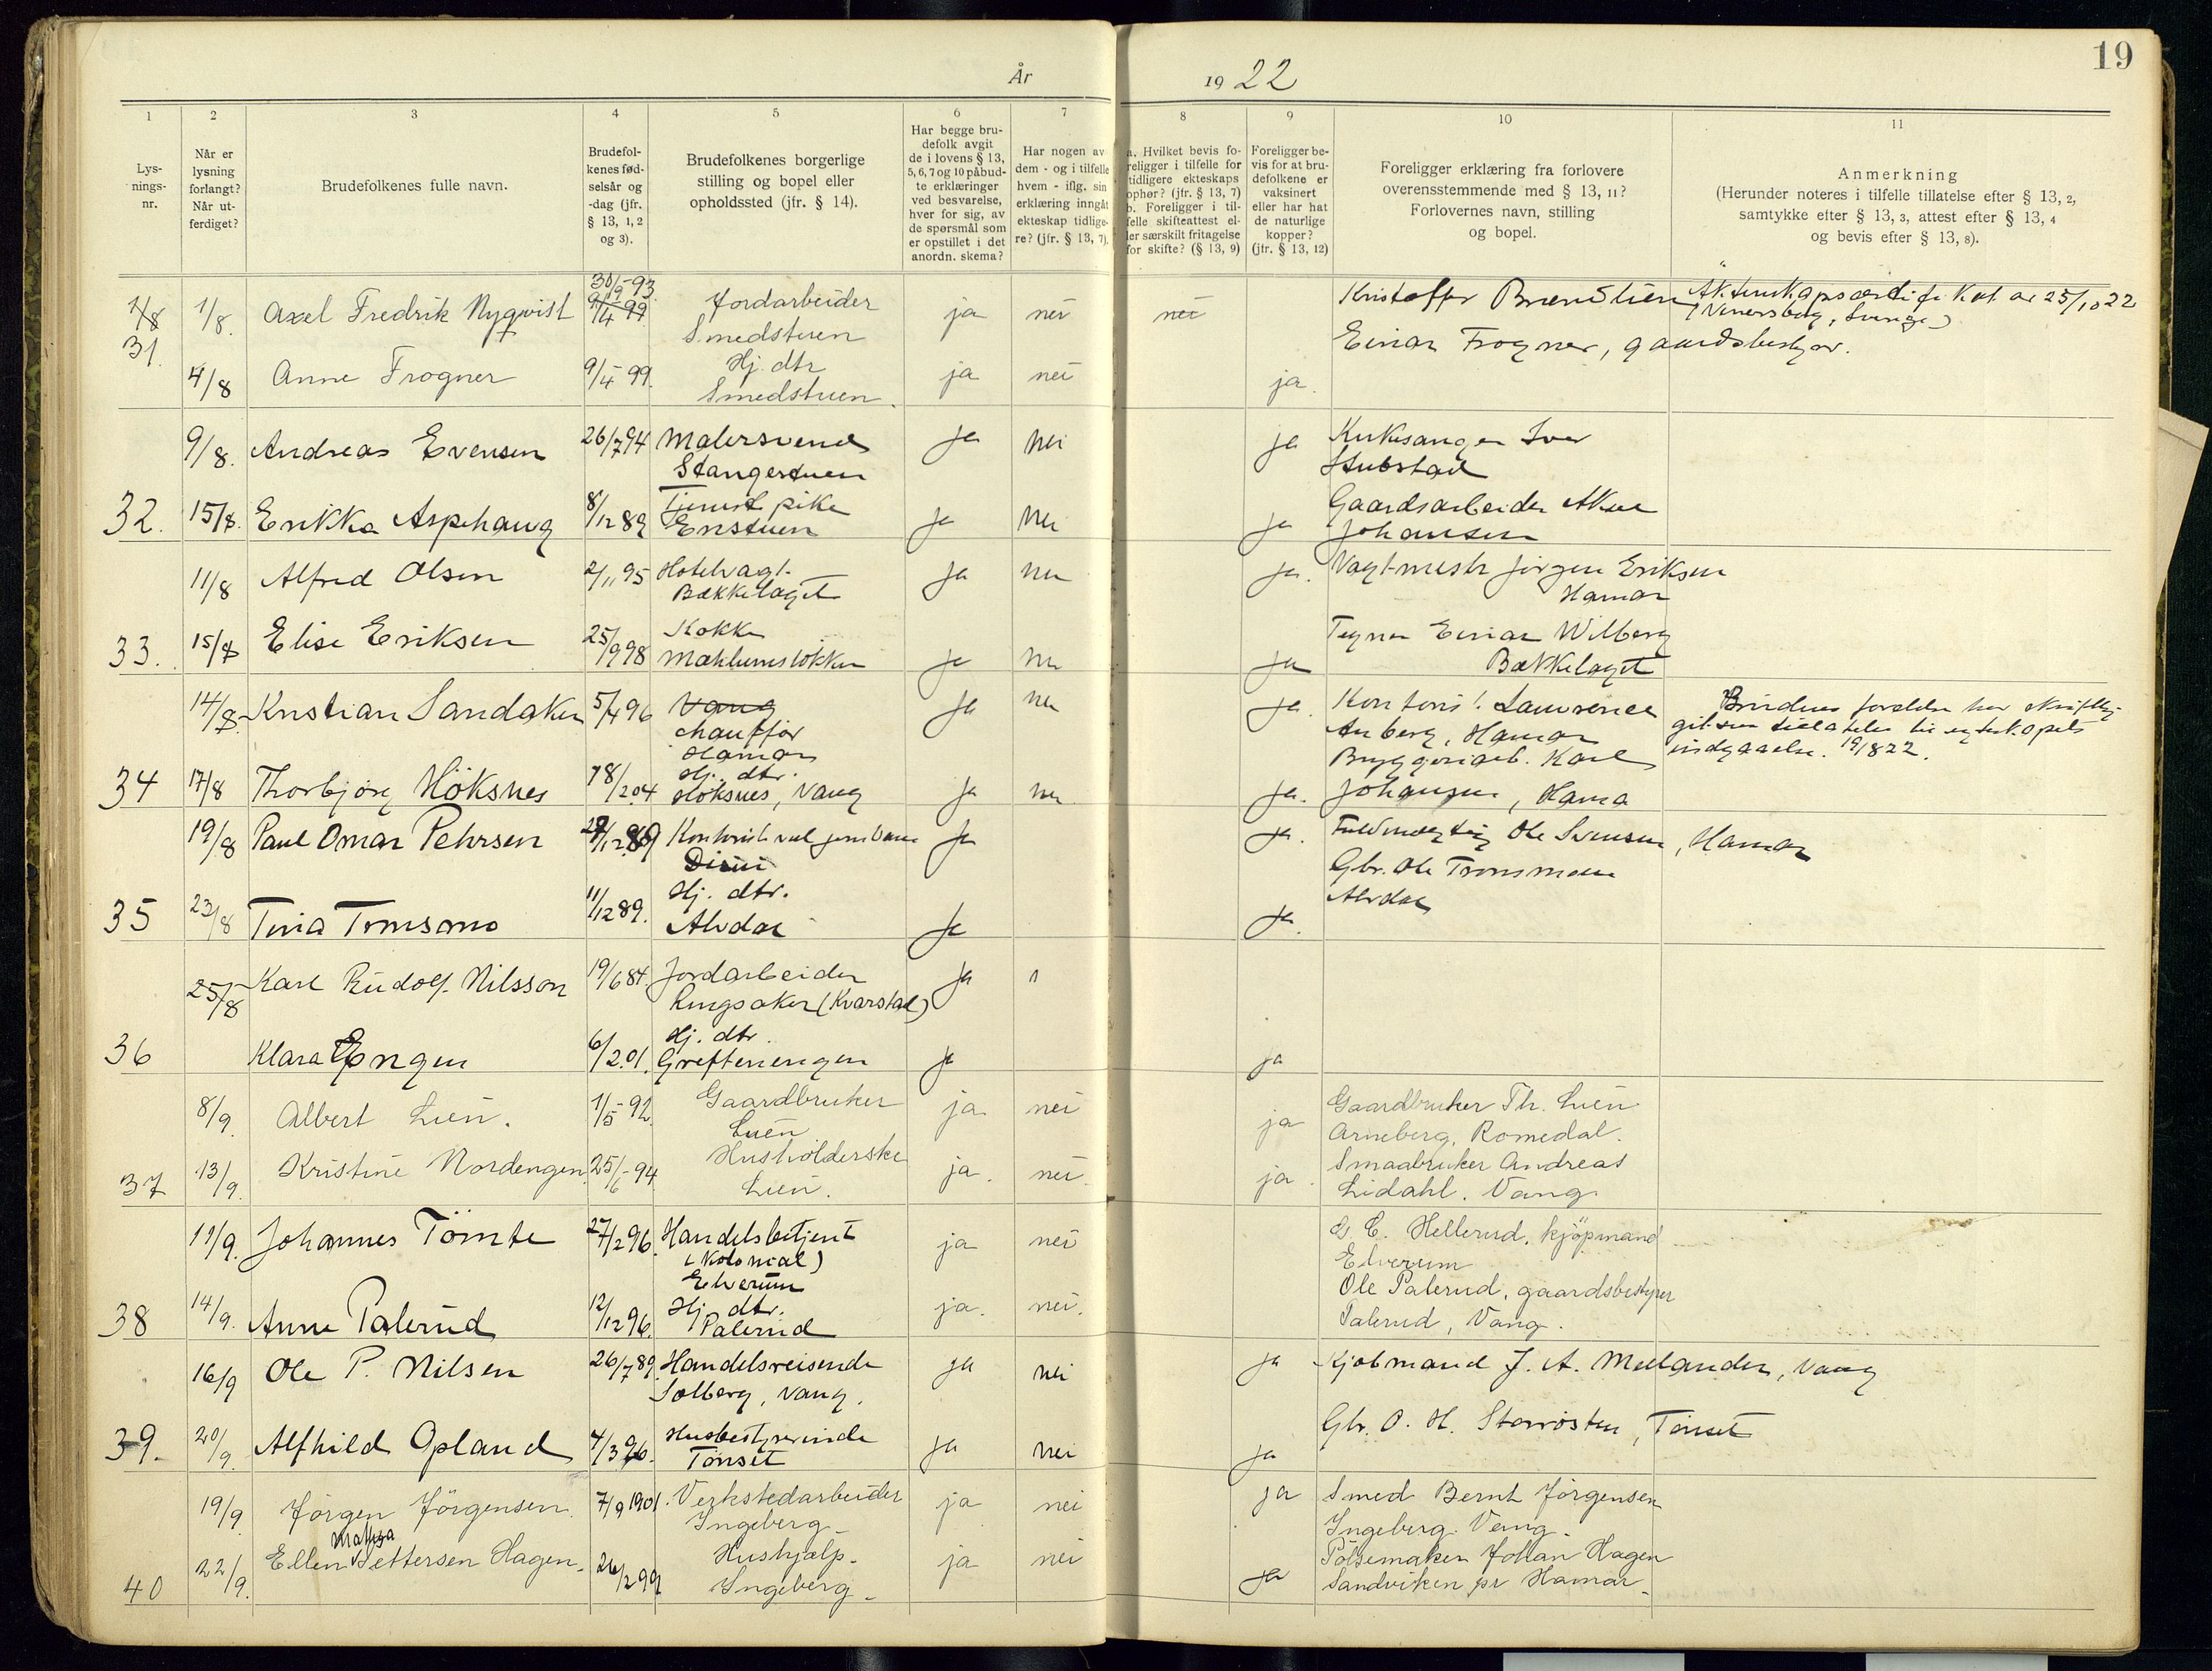 19
År 1922
1 2 3 4 5 6 7 8 9 10 11
Lysningsnr.
Når er lysning forlangt? Når utferdiget?
Brudefolkenes fulle navn.
Brudefolkenes fødselsår og -dag (jfr. § 13, 1, 2 og 3).
Brudefolkenes borgerlige stilling og bopel eller opholdssted (jfr. § 14).
Har begge brudefolk avgit de i lovens § 13, 5, 6, 7 og 10 påbudte erklæringer ved besvarelse, hver for sig, av de spørsmål som er opstillet i det anordn. skema?
Har nogen av dem - og i tilfelle hvem - iflg. sin erklæring inngåt ekteskap tidligere? (jfr. § 13, 7).
a. Hvilket bevis foreligger i tilfelle for tidligere ekteskaps ophør? (jfr. § 13, 7) b. Foreligger i tilfelle skifteattest eller særskilt fritagelse for skifte? (§ 13, 9)
Foreligger bevis for at brudefolkene er vaksinert eller har hat de naturlige kopper? (jfr. § 13, 12)
Foreligger erklæring fra forlovere overensstemmende med § 13, 11? Forlovernes navn, stilling og bopel.
Anmerkning
(Herunder noteres i tilfelle tillatelse efter § 13, 2, samtykke efter § 13, 3, attest efter § 13, 4 og bevis efter § 13, 8).
1/8 1/8. Axel Fredrik Nyqvist 30/9-93 9/4-99 Jordarbeider Smedstuen ja nei nei Kristoffer
25/10 22
31. 4/8 Anne Frogner 9/4-99. Hj. dtr Smedstuen ja nei ja. Einar Frogner, gaardsbestyr.
9/8. Andreas Evensen 26/7 94 Malersvend Stangestuen ja nei ja Kirkesanger Iver Stubstad
32. 15/8. Erikka Asphaug 8/12 89 Tjenestpike Enstuen ja nei ja Gaardsarbeider Johansen
11/8 Alfred Olsen 2/11 95 Hotelvagt. Bækkelaget ja nei ja. Vagtmestr Jørgen Eriksen Hamar
33. 15/8 Elise Eriksen 25/9 98 Kokke Mæhlumsløkken ja nei ja Tegner Einar Wilberg Bækkelaget
14/8 Kristian Sandaker 5/4 96 Vang Chauffør Hamar ja nei ja. Kontorist. Laurence Auberg, Hamar
Brudens foreldre har skriftlig git sin tillatelse til egteskapets indgaaelse. 19/8 22.
34 17/8 Thorbjørg Høksnes 18/2 04 Hj. dtr. Høksnes, Vang ja nei ja. Bryggeriarb. Karl Johansen, Hama
19/8 Paul Omar Pehrsen Kontorist ved jernbanen ja ja. Fuldmægtig Ole Svensen, Hamar
35 23/8 11/12 89. Hj. dtr. Alvdal ja ja. Gbr. Ole Tronsmoen Alvdal
25/8 Karl Rudolf Nilsson 19/6 84. Jordarbeider Ringsaker (Kvarstad) ja
36 Klara Engen 6/2 01. Hj. dtr. Greftenengen ja ja
8/9. Albert Lien. 1/5-92. Gaardbruker Lien ja nei ja Gaardbruker Th. Lien Arneberg, Romedal.
37 13/9. Kristine Nordengen 25/6-94 Husholderske Lien. ja. nei. ja. Smaabruker Andreas Lidahl. Vang.
11/9. Johannes Tömte 27/2 96. Handelsbetjent (Kolonial) Elverum ja nei G. C. Hellerud, kjöpmand Elverum
38 14/9. Anne Palerud 12/12 96. Hj. dtr. Palerud ja. nei. Ole Palerud, gaardsbestyrer Palerud, Vang.
16/9 Ole P. Nilsen 26/7 89. Handelsreisende Solberg, Vang. ja nei ja Kjøbmand J. A. Melander, Vang
39. 20/9. Alfhild Opland 4/3 96. Husbestyrerinde Tønset ja nei ja Gbr. O. H. Storrøsten, Tønset
19/9. Jörgen Jörgensen 7/9 1901. Verkstedarbeider Ingeberg. ja nei ja Smed Bernt Jörgensen Ingeberg. Vang.
40 22/9. Ellen Mathea Pettersen Hagen. 26/2 99 Hushjælp. Ingeberg. ja nei ja Pölsemaker Johan Hagen Sandviken pr Hamar.